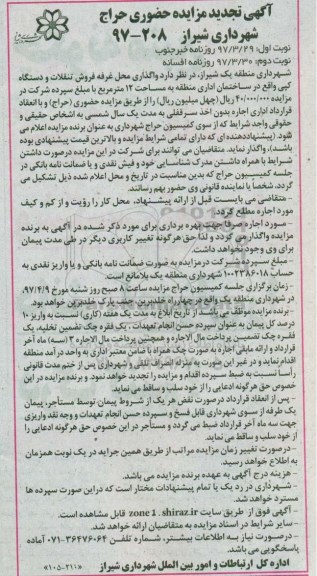 آگهی تجدید مزایده حضوری حراج
شهرداری شیراز ۲۰۸-۹۷
نوبت اول: ۹۷/۳/۲۹ روزنامه خبرجنوب
نوبت دوم: ۹۷/۳/۳۰ روزنامه افسانه
شهرداری منطقه یک شیراز، در نظر دارد واگذاری محل غرفه فروش تنقلات و دستگاه
کپی واقع در ساختمان اداری منطقه به مساحت ۱۲ مترمربع با مبلغ سپرده شرکت در
مزایده ۴۰/۰۰۰/۰۰۰ ریال (چهل میلیون ریال) را از طریق مزایده حضوری (حراج) و با انعقاد
قرارداد اداری اجاره بدون اخذ سرقفلی به مدت یک سال شمسی به اشخاص حقیقی و
حقوقی واجد شرایط که از سوی کمیسیون حراج شهرداری به عنوان برنده مزایده اعلام می
شود، (پیشنهاددهنده ای که دارای تمامی شرایط مزایده و بالاترین قیمت پیشنهادی بوده
باشد)، واگذار نماید. متقاضیان می توانند برای شرکت در این مزایده درصورت داشتن
شرایط با همراه داشتن مدرک شناسایی خود و فیش نقدی و یا ضمانت نامه بانکی در
جلسه کمیسیون حراج که بدین مناسبت در تاریخ و محل اعلام شده ذیل تشکیل می
گردد، شخصا یا نماینده قانونی وی حضور بهم رسانند.
- متقاضی می بایست قبل از ارائه پیشنهاد، محل کار را رؤیت و از کم و کیف
مورد اجاره مطلع گردد.
- مورد اجاره صرفا جهت بهره برداری برای مورد ذکر شده در آگهی به برنده
مزایده واگذار می گردد و لذا حق هرگونه تغییر کاربری دیگر در طی مدت پیمان
برای وی وجود نخواهد داشت.
- مبلغ سپرده شرکت در مزایده به صورت ضمانت نامه بانکی و یا واریز نقدی به
حساب ۱۰۰۲۳۸۶۰۱۸ شهرداری منطقه یک بلامانع است.
- زمان برگزاری جلسه کمیسیون حراج مزایده ساعت ۸ صبح روز شنبه مورخ ۹۷/۴/۹،
در شهرداری منطقه یک واقع در چهارراه خلدبرین، جنب پارک خلدبرین خواهد بود.
- برنده مزایده موظف می باشد از تاریخ ابلاغ به مدت یک هفته (کاری) نسبت به واریز ۱۰
درصد کل پیمان به عنوان سپرده حسن انجام تعهدات، یک فقره چک تضمین تخلیه، یک
فقره چک تضمین پرداخت مال الاجاره و همچنین پرداخت مال الاجاره ۳ (سه) ماه آخر
قرارداد و ارائه مابقی اجاره به صورت چک همراه با ضامن معتبر اداری به واحد درآمد منطقه
اقدام نماید و در غیر این صورت به منزله انصراف تلقی و شهرداری پس از ختم مدت قانونی
راسا نسبت به ضبط سپرده اقدام و مزایده را تجدید خواهد نمود. و برنده مزایده در این
خصوص حق هرگونه ادعایی را از خود سلب و ساقط می نماید.
- پس از انعقاد قرارداد درصورت نقض هر یک از شروط پیمان توسط مستأجر، پیمان
یک طرفه از سوی شهرداری قابل فسخ و سپرده حسن انجام تعهدات و وجه نقد واریزی
جهت سه ماه آخر قرارداد ضبط می گردد و مستأجر در این خصوص حق هرگونه ادعایی را
از خود سلب و ساقط می نماید.
- درصورت تغییر زمان مزایده مراتب از طریق همین جراید در یک نوبت همزمان
به اطلاع خواهد رسید.
- هزینه درج آگهی به عهده برنده مزایده می باشد.
- شهرداری در رد یک یا تمام پیشنهادات مختار است که دراین صورت سپرده ها
مسترد خواهد شد.
- آگهی فوق از طریق سایت zone1.shiraz.ir قابل مشاهده است.
- سایر شرایط در اسناد مزایده به متقاضیان ارائه خواهد شد.
- درصورت نیاز به اطلاعات بیشتر، شماره تلفن ۳۶۴۷۶۰۶۴-۰۷۱ آماده
پاسخگویی می باشد.
اداره کل ارتباطات و امور بین الملل شهرداری شیراز «۲۱۱-۱۰۵»